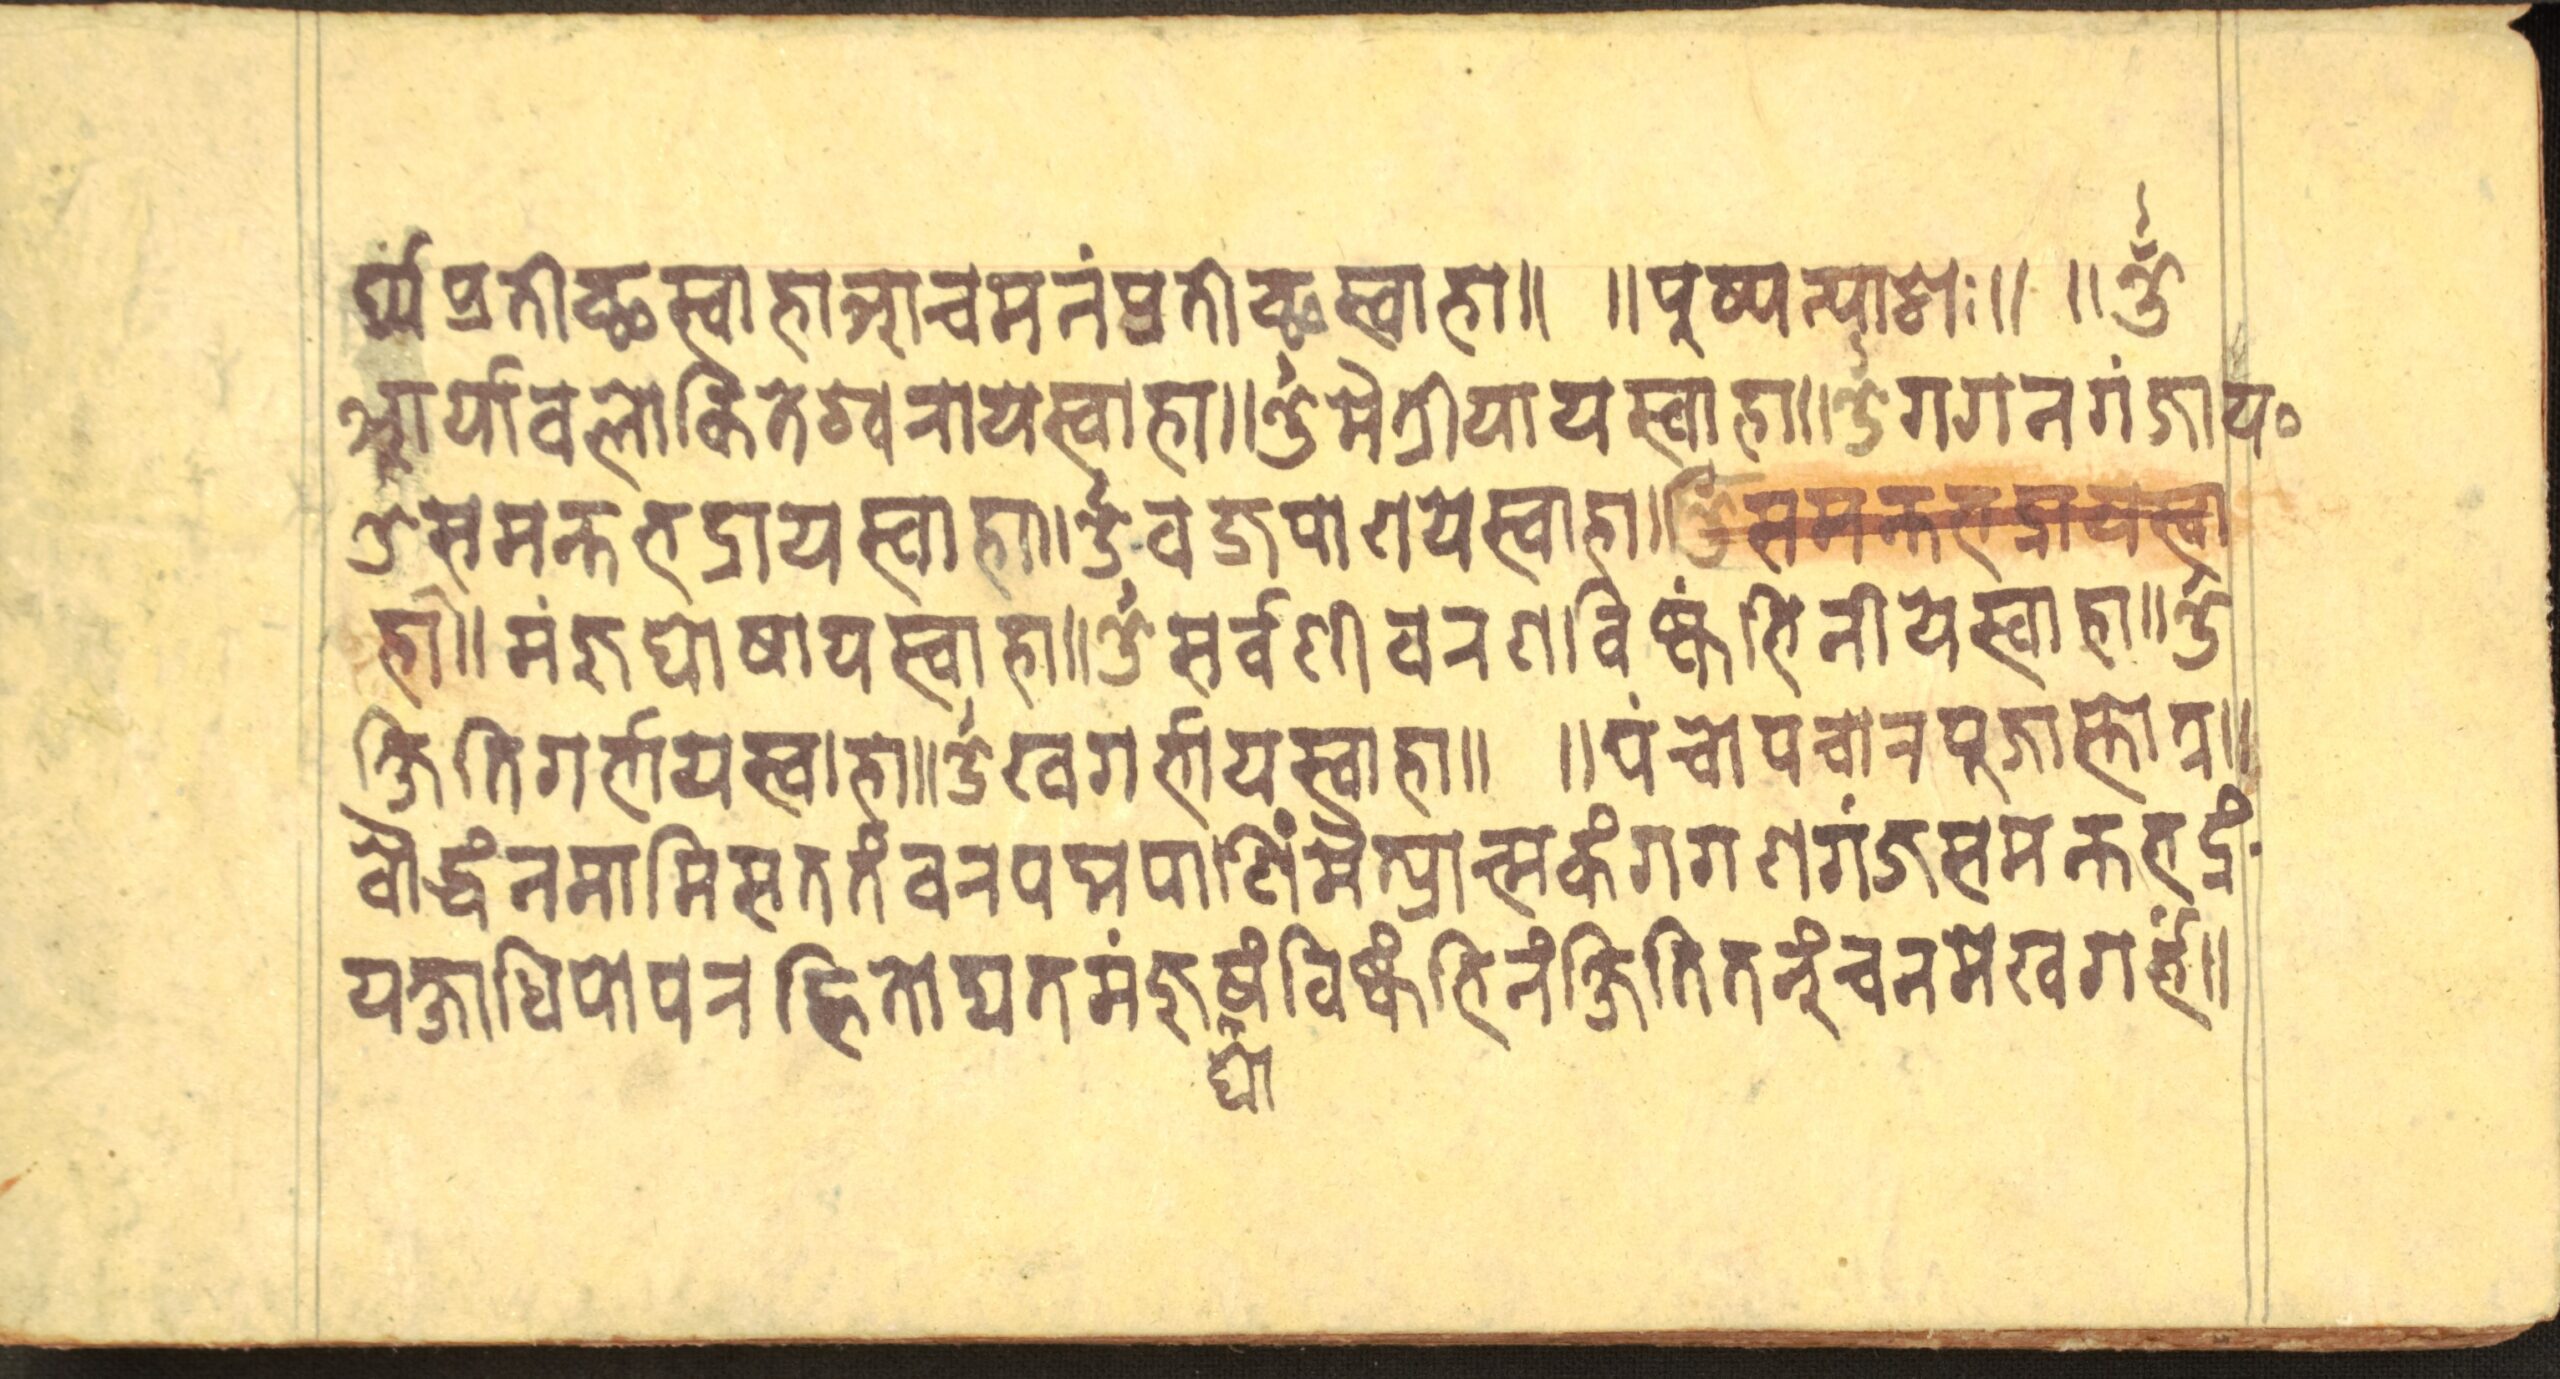 र्घ्यंप्रतीच्छस्वाहाआचमनंप्रतीच्छस्वाहा॥ ॥पुष्पन्याशः॥ ॥ॐ
आर्यावलोकितेश्वरायस्वाहा॥ॐमैत्रीयायस्वाहा॥ॐगगनगंजाय॰
ॐसमन्तभद्रायस्वाहा॥ॐवज्रपाणयेस्वाहा॥ॐसमन्तभद्रायस्वा
हा॥मंजुघोषायस्वाहा॥ॐसर्वणीवरणविष्कंभिनीयेस्वाहा॥ॐ
क्षितिगर्भायस्वाहा॥ॐखगर्भायस्वाहा॥ ॥पंचोपचारपुजास्तोत्र॥
बौद्धंनमामिसततंवरपद्मपाणिंमैत्र्यात्मकंगगणगंजसमन्तभद्रं
यक्षाधिपोपरहितोद्यतमंजुषंविष्कंभिनंक्षितितनुंचनमेखगर्भं॥
घो